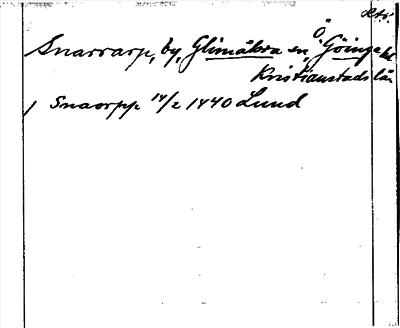 Snarrarp, by, Glimåkra sn, Ö. Göinge hd
Kristianstads län
1 Snaorpp 14/2 1440 Lund